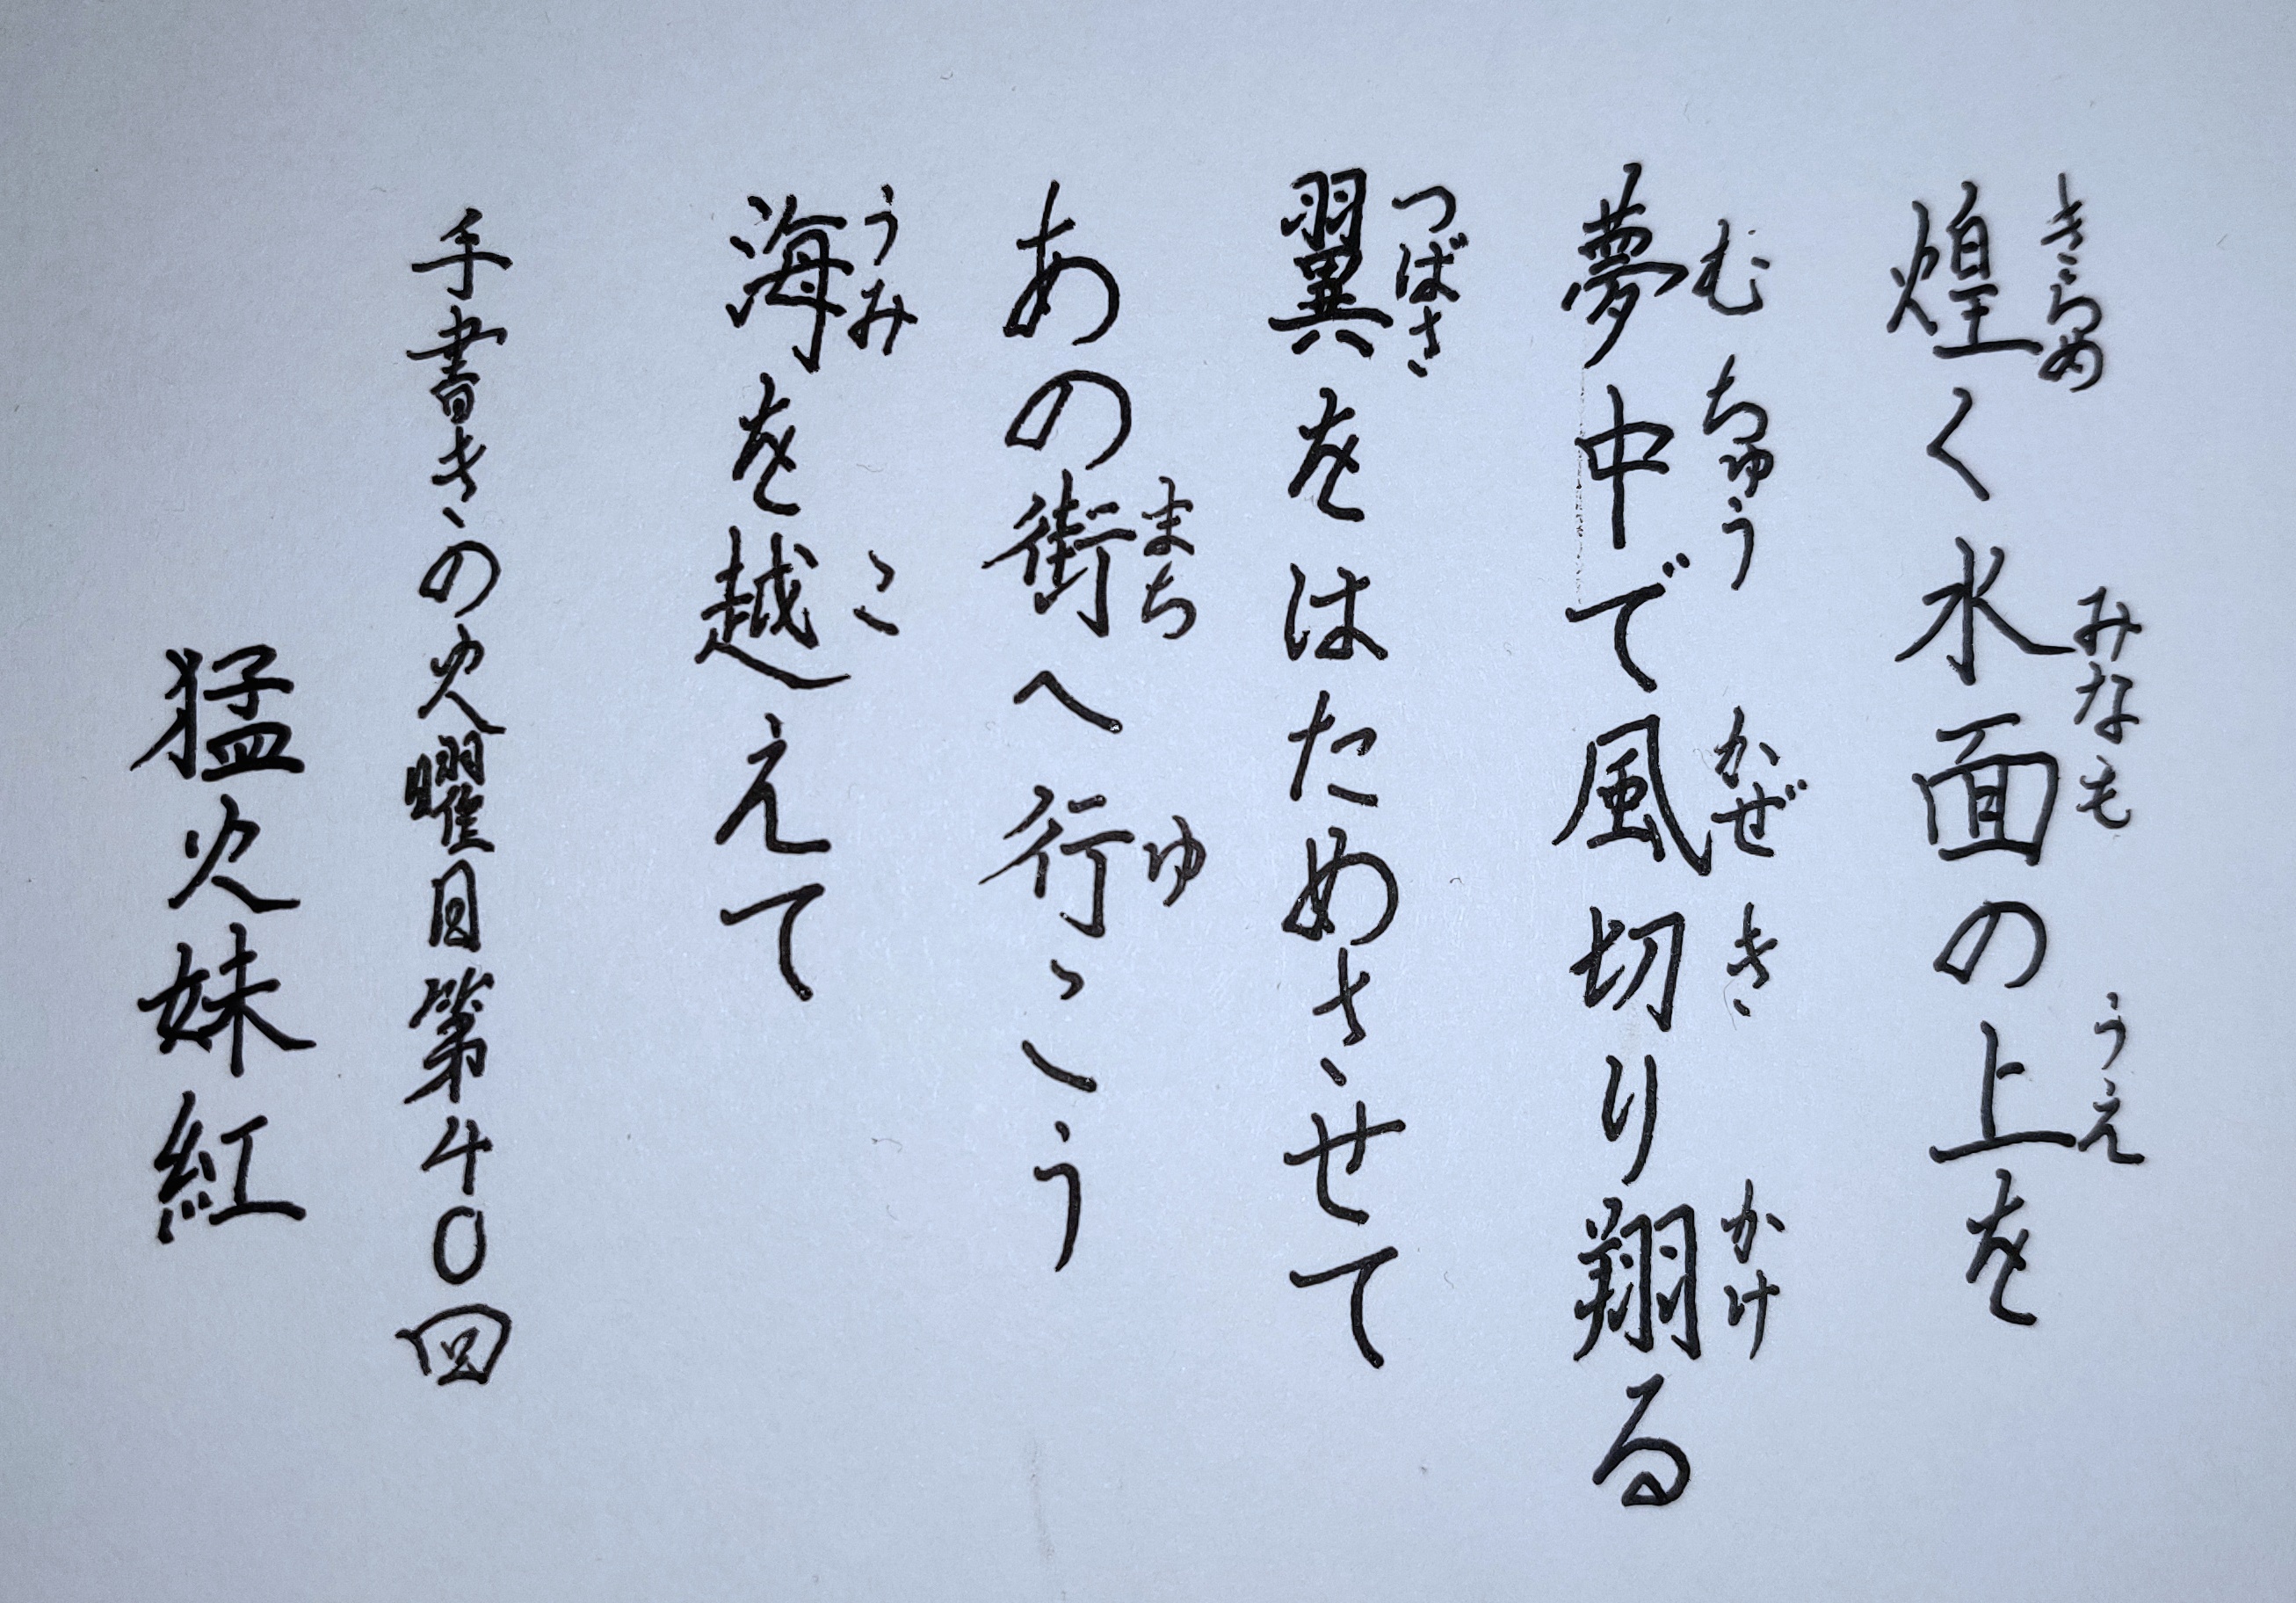 煌く水面の上を
きらめ みなも うえ
夢中で風切り翔る
むちゅう かぜ き かけ
翼をはためさせて
つばさ
あの街へ行こう
まち ゆ
海を越えて
うみ こ
手書きの火曜日第40回
猛火妹紅